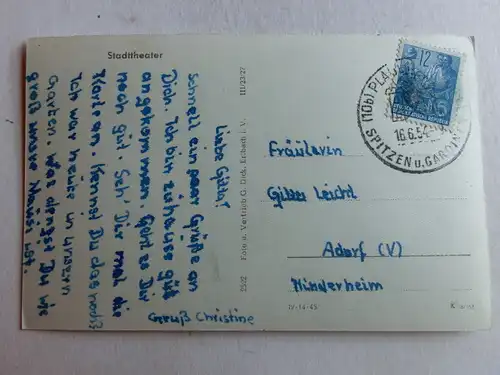 Stadttheater
Liebe Gitta!
Schnell ein paar Grüße an
Dich. Ich bin zuhause gut
angekommen. Geht es Dir
noch gut. Seh' Dir mal die
Karte an. Kennst Du das noch?
Ich war heute in unsern
Garten. Was denkst Du wie
groß unsre Mausi ist.
Gruß Christine
III/23/27
Foto u. Vertrieb G. Dick, Erlbach i. V.
2502
Fräulein
Gitta Leicht
Adorf (V)
Kinderheim
IV-14-45
12
DEUTSCHE
DEMOKRATISCHE REPUBLIK
(10b) PLAUEN
16.6.54
SPITZEN u. GARDINEN